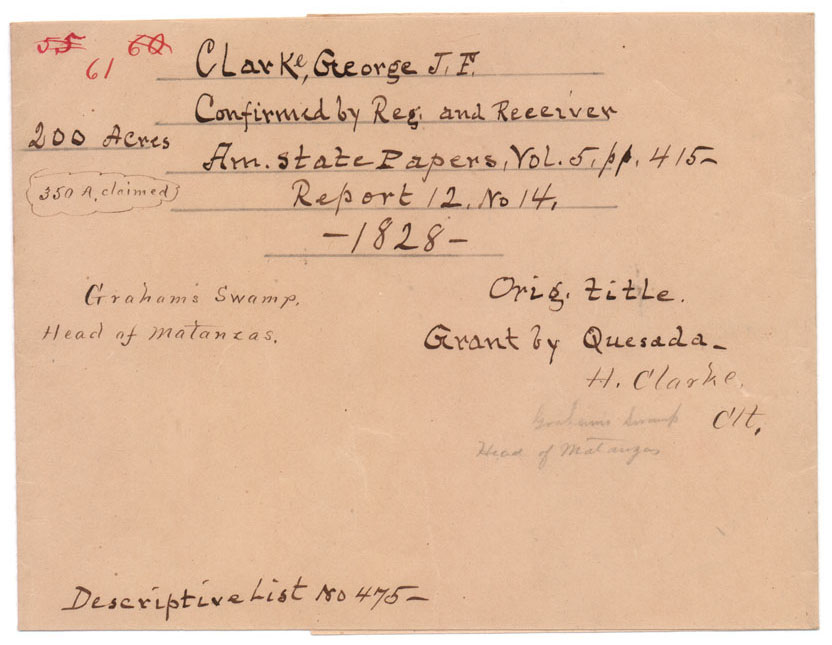 55 60
61
Clarke, George J. F.
Confirmed by Reg. and Receiver
200 Acres
Am. State Papers, Vol. 5, pp. 415-
350 A. claimed
Report 12, No 14.
-1828-
Graham's Swamp.
Head of Matanzas.
Orig. title.
Grant by Quesada-
H. Clarke.
Clt.
Graham's Swamp
Head of Matanzas
Descriptive List No 475-